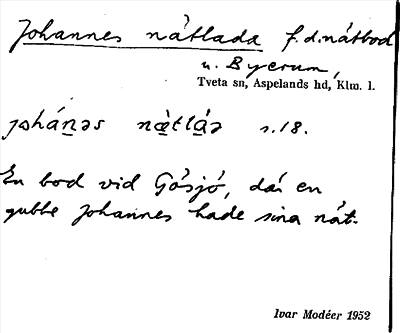 Johannes nåtlada f.d. nåtbod
u. Byerum,
Tveta sn, Aspelands hd, Klm. l.
johánəs næ̀tlɑ̀ə s. 18.
En bod vid Gösjö, där en
gubbe Johannes hade sina nät.
Ivar Modéer 1952